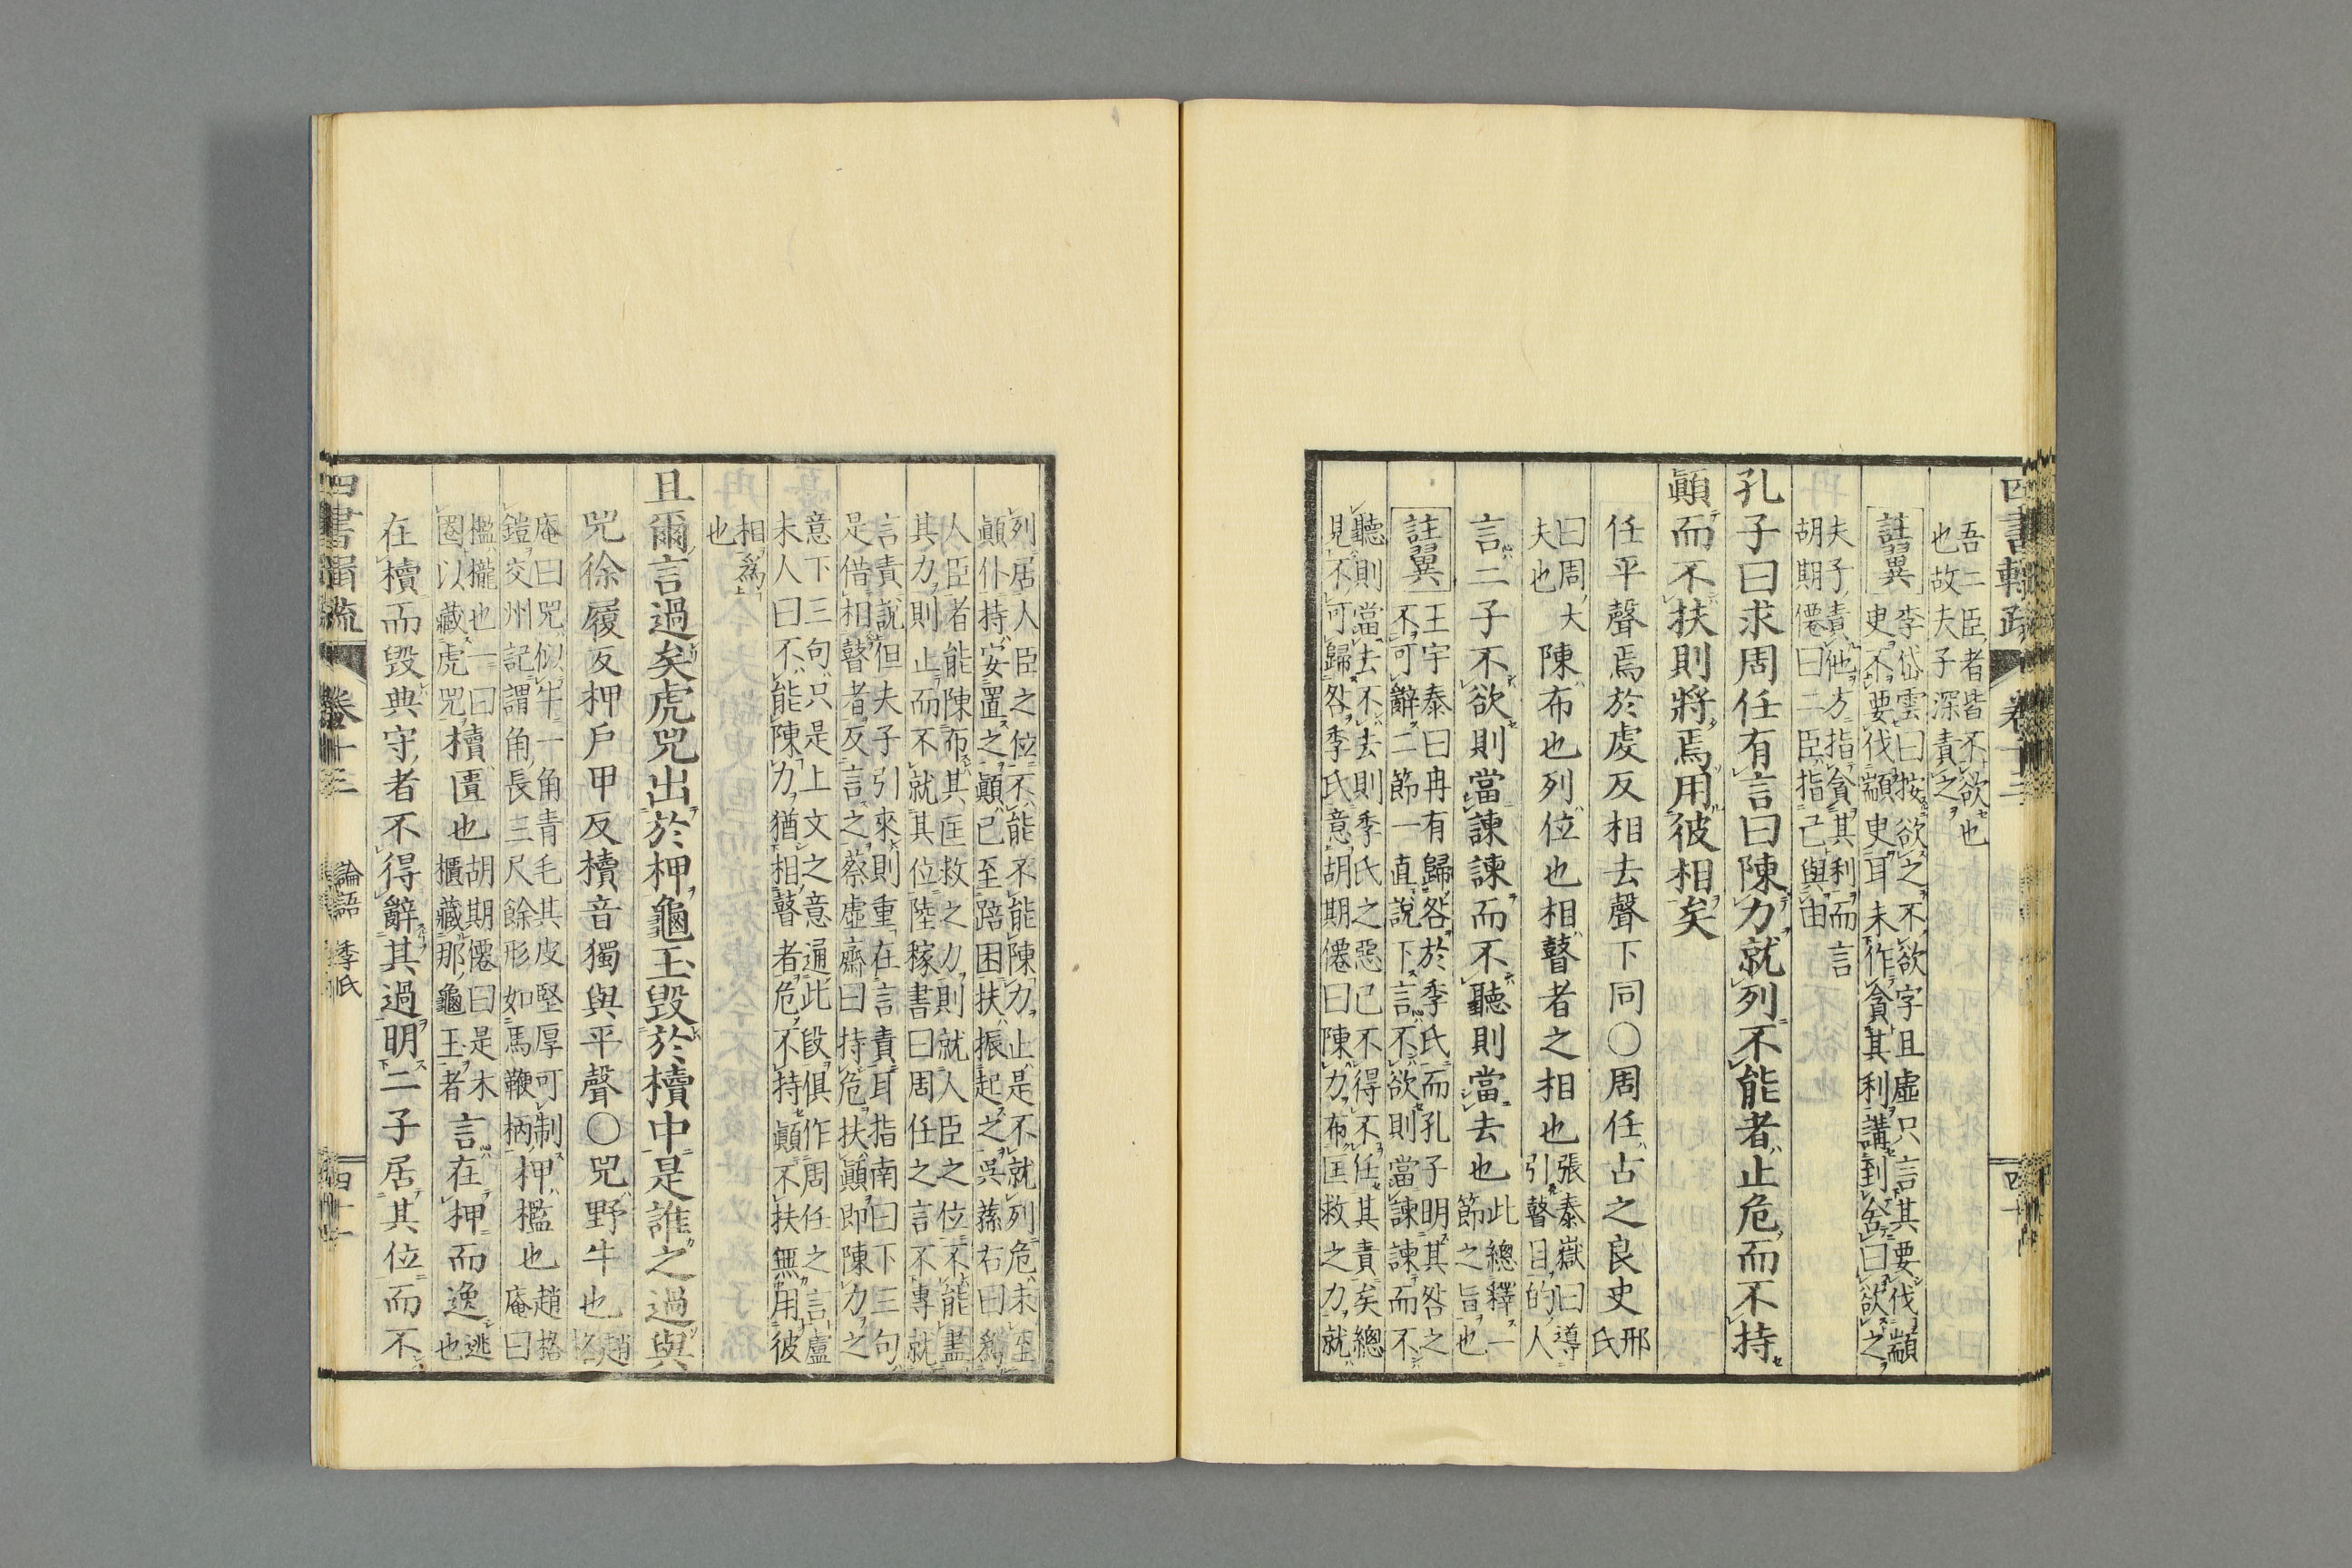 四書輯疏 卷十三 四十
吾二臣者皆不欲也
也故夫子深責之
註翼 李岱雲曰按欲之不欲字且虛只言其要伐顓
臾不要伐顓臾耳未作貪其利講到舍曰欲之
夫子責他方指貪其利而言
胡期僊曰二臣指己與由
孔子曰求周任有言曰陳力就列不能者止危而不持
顚而不扶則將焉用彼相矣
任平聲焉於虔反相去聲下同○周任古之良史邢氏
曰周大夫也陳布也列位也相瞽者之相也張泰嶽曰導引瞽目的人
言二子不欲則當諫諫而不聽則當去也此總釋一節之旨也
註翼 王宇泰曰冉有歸咎於季氏而孔子明其咎之
不可辭二節一直說下言不欲則當諫諫而不
聽則當去不去則季氏之惡己不得不任其責矣總
見不可歸咎季氏意胡期僊曰陳力布匡救之力就
列居人臣之位不能不能陳力止是不就列危未至
顚仆持安置之顚已至踣困扶振起之吳蓀右曰爲
人臣者能陳布其匡救之力則就人臣之位不能盡
其力則止而不就其位陸稼書曰周任之言不專就
言責說但夫子引來則重在言責耳指南曰下三句
是借相瞽者反言之蔡虛齋曰持危扶顚即陳力之
意下三句只是上文之意通此段俱作周任之言盧
未人曰不能陳力猶相瞽者危不持顚不扶無用彼
相爲
也
且爾言過矣虎兕出於柙龜玉毀於櫝中是誰之過與
兕徐履反柙戶甲反櫝音獨與平聲○兕野牛也趙格
庵曰兕似牛一角青毛其皮堅厚可制
鎧交州記謂角長三尺餘形如馬鞭柄柙檻也趙格庵曰
檻攏也一曰圈以藏虎兕櫝匱也胡期僊曰是木櫃藏那龜玉者言在柙而逸逃也
在櫝而毀典守者不得辭其過明二子居其位而不
四書輯疏 卷十三 論語 季氏 四十一